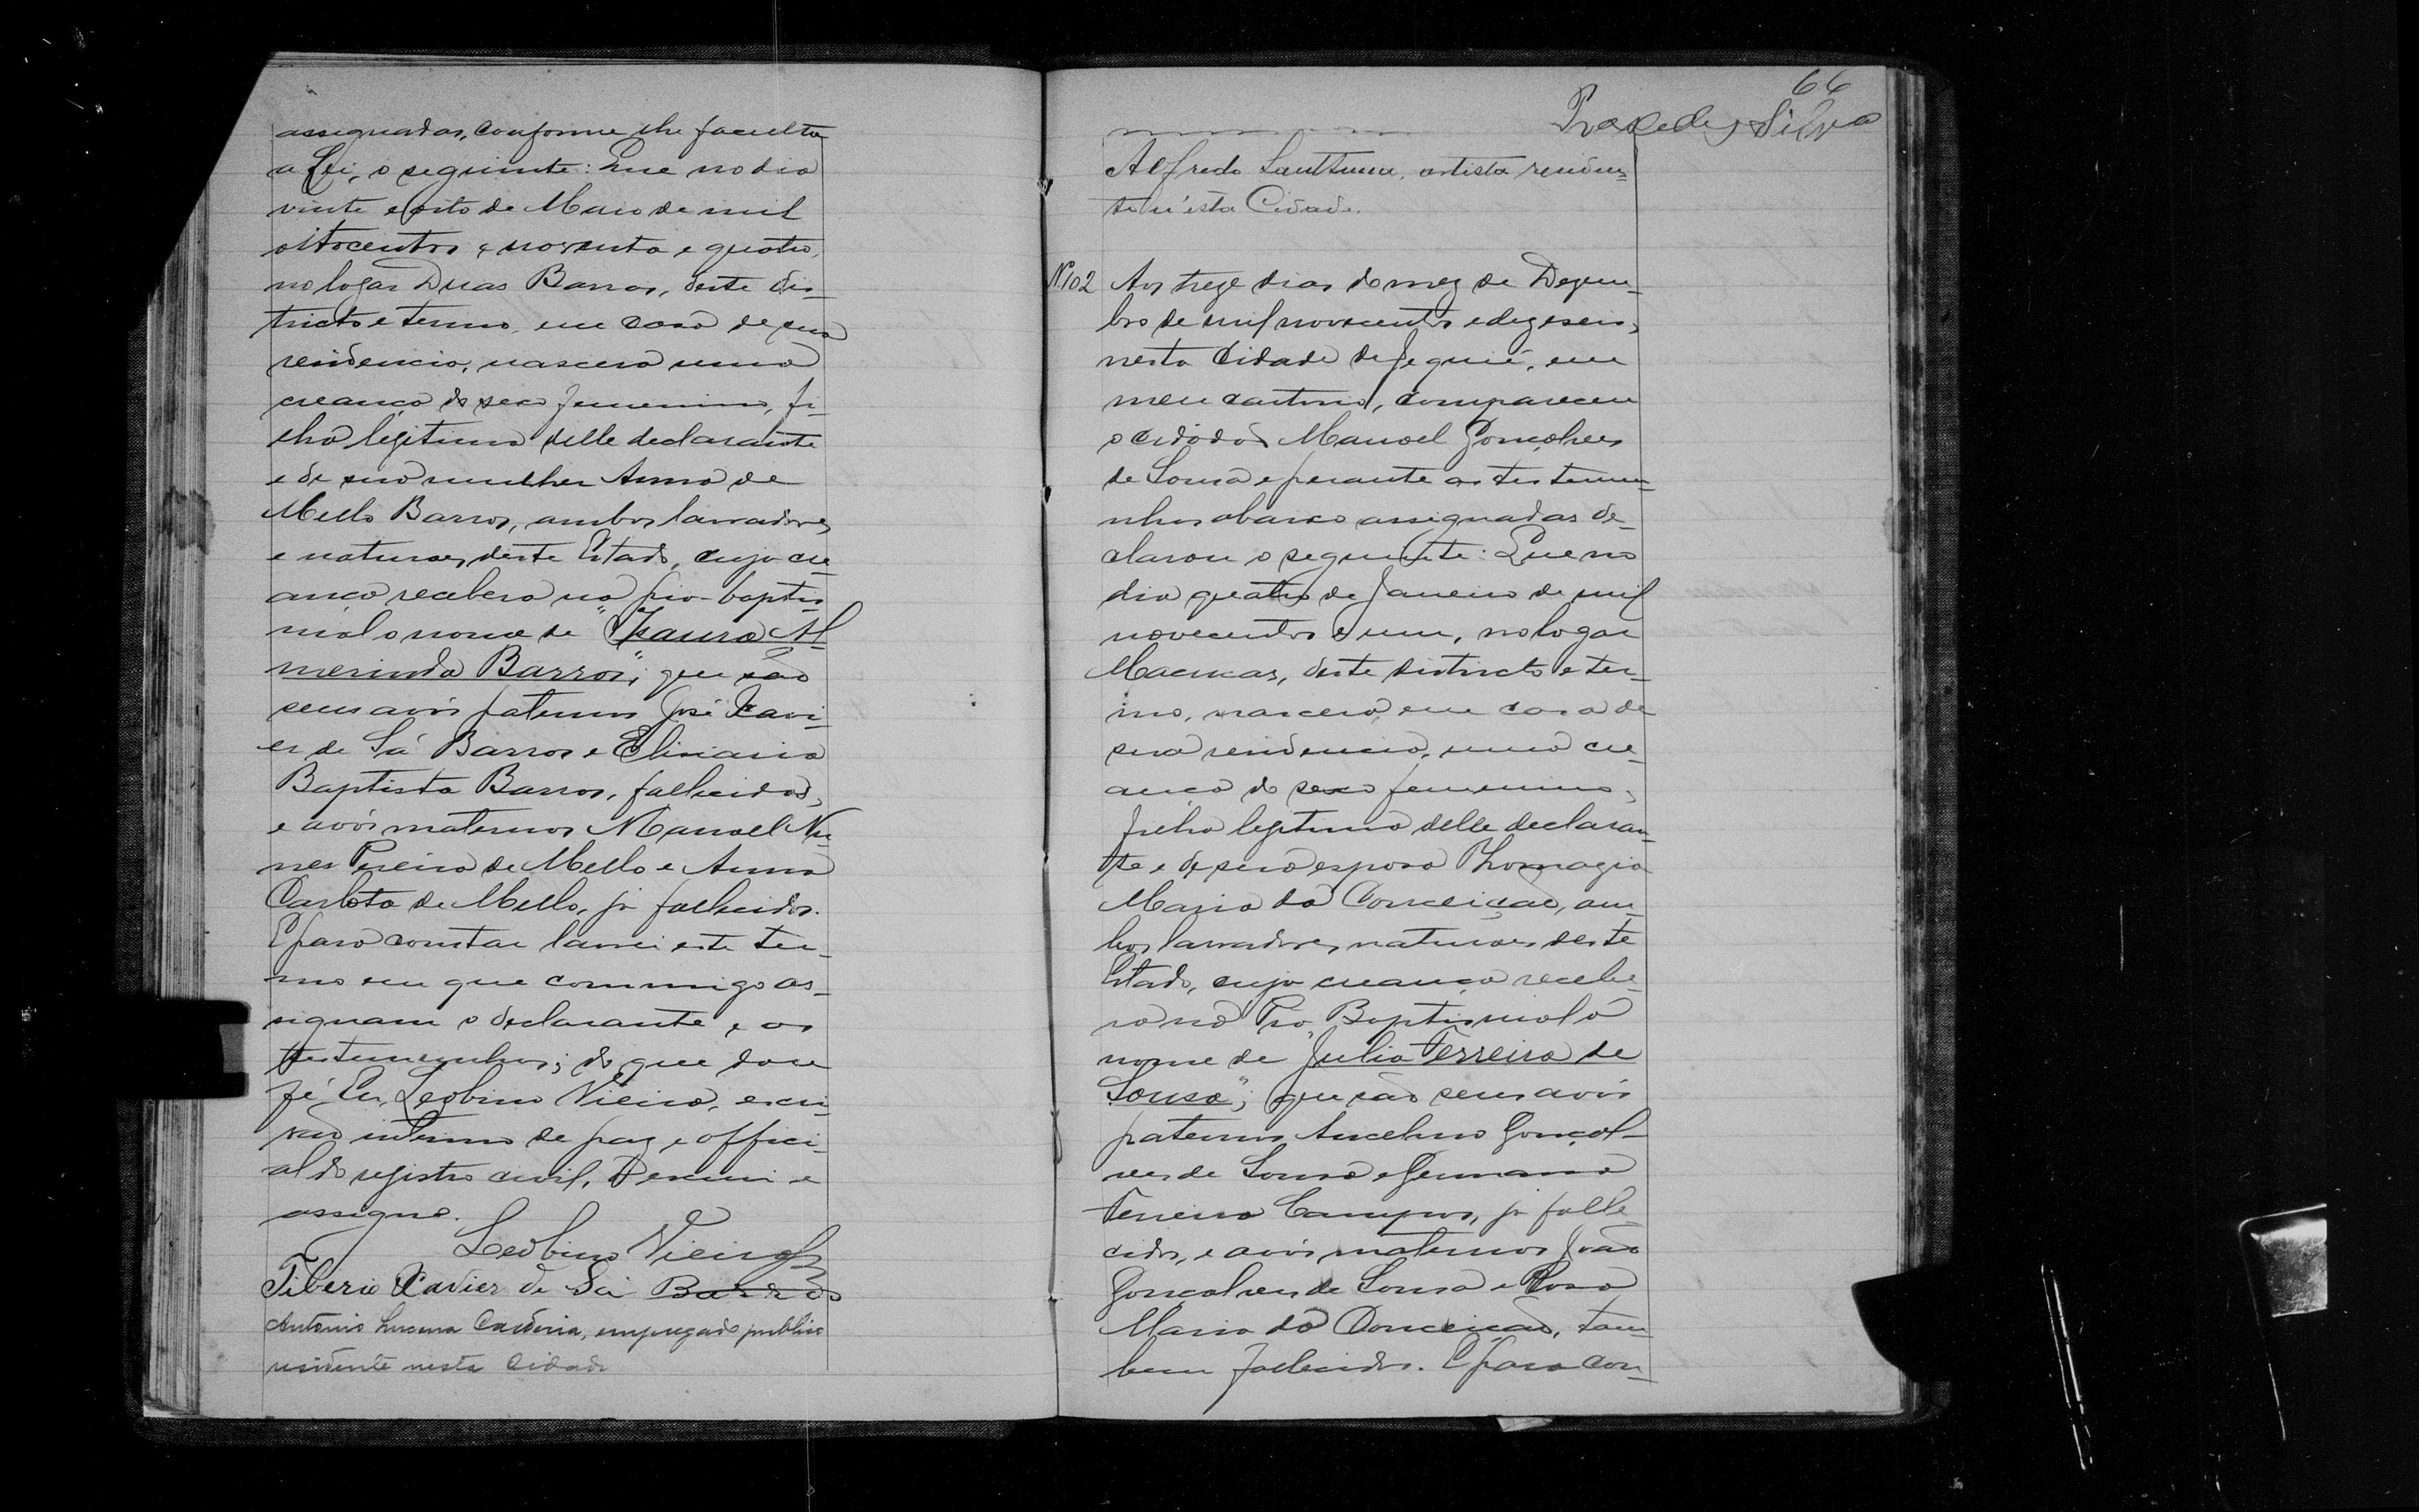 assignadas, conforme lhe faculta
a Lei, o seguinte: Que no dia
vinte e oito de Maio de mil
oitocentos e noventa e quatro,
no logar Duas Barras, deste dis-
tricto e termo, em casa de sua
residencia, nascera uma
creança do sexo femenino, fi-
lha legitima delle declarante
e de sua mulher Anna de
Mello Barros, ambos lavradores,
e naturaes deste Estado, cuja cre-
ança recebera na pia baptis-
mal o nome de "Isaura Al-
merinda Barros"; que são
seus avós paternos José Xavi-
er de Sá Barros e
Baptista Barros, fallecidos,
e avós maternos Manoel Nu-
nes Pereira de Mello e Anna
Carlota de Mello, já fallecidos.
E para constar lavrei este ter-
mo em que commigo as-
signam o declarante e as
testemunhas; do que dou
fé. Eu, Leobino Vieira, escri-
vão interino de paz e offici-
al do registro civil, o escrevi e
assigno.
Leobino Vieira
Tiberio Xavier de Sá Barros
Antonio Lucena, empregado publico
residente nesta Cidade
66
Praxedes Silva
Alfredo Santtanna, artista residen-
te n'esta Cidade.
Nº 102 Aos treze dias do mez de Dezem-
bro de mil novecentos e dezeseis,
nesta Cidade de Jequié, em
meu cartorio, compareceu
o cidadão Manoel Gonçalves
de Sousa e perante as testemu-
nhas abaixo assignadas de-
clarou o seguinte: Que no
dia quatro de Janeiro de mil
novecentos e um, no logar
Macucas, deste districto e ter-
mo, nascera em casa de
sua residencia, uma cre-
ança do sexo femenino,
filha legitima delle declaran-
te e de sua esposa Thomazia
Maria da Conceição, am-
bos lavradores, naturaes deste
Estado, cuja creança recebe-
ra na Pia Baptismal o
nome de "Julia Ferreira de
Sousa"; que são seus avós
paternos Ancelmo Gonçal-
ves de Sousa e Germana
Ferreira Campos, já falle-
cidos, e avós maternos João
Gonçalves de Sousa e Rosa
Maria da Conceição, tam-
bem fallecidos. E para con-